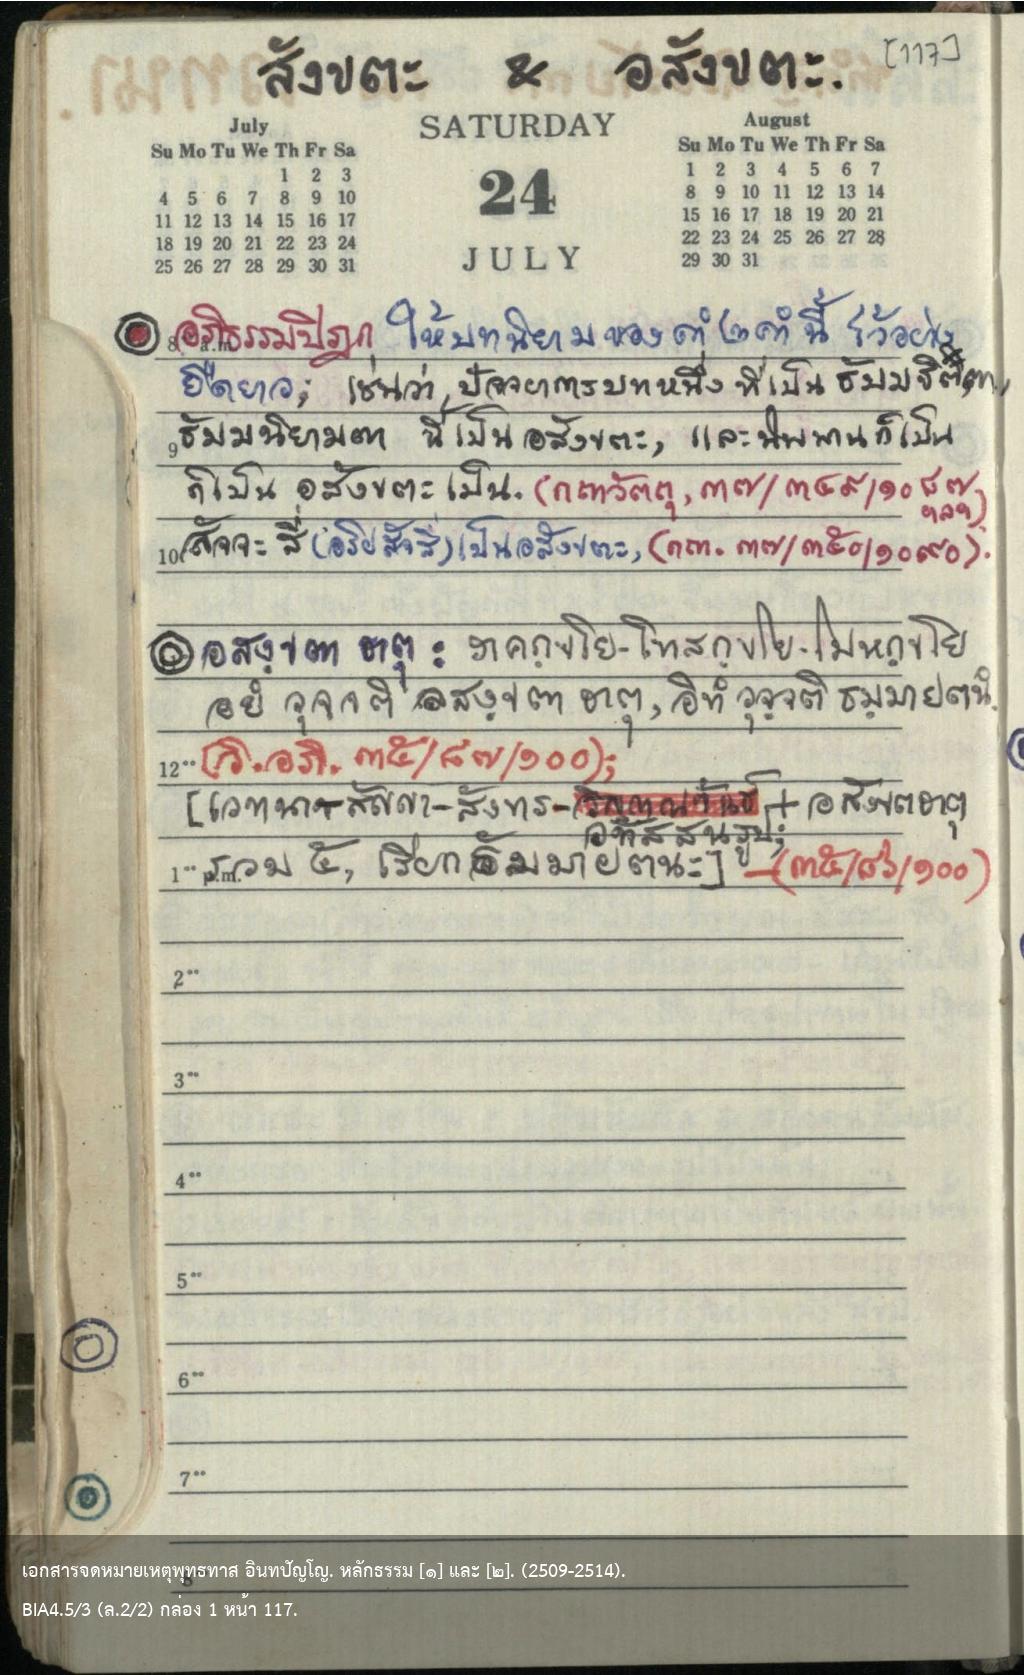 สังขตะ & อสังขตะ. [117]
July
Su Mo Tu We Th Fr Sa
1 2 3
4 5 6 7 8 9 10
11 12 13 14 15 16 17
18 19 20 21 22 23 24
25 26 27 28 29 30 31
SATURDAY
24
JULY
August
Su Mo Tu We Th Fr Sa
1 2 3 4 5 6 7
8 9 10 11 12 13 14
15 16 17 18 19 20 21
22 23 24 25 26 27 28
29 30 31
อภิธรรมปิฎก ให้บทนิยามของคำ ๒ คำ นี้ ไว้อย่าง
ยืดยาว; เช่นว่า, ปัจจยาการบทหนึ่ง ที่เป็น ธัมมฐิตตา,
ธัมมนิยามตา นี้เป็น อสังขตะ, และนิพพาน ก็เป็น
ก็เป็น อสังขตะ เป็น. (กถาวัตถุ, ๓๗/๓๔๙/๑๐๘๗ ฯลฯ)
สัจจะ สี่ (อริยสัจสี่) เป็นอสังขตะ, (กถา. ๓๗/๓๕๐/๑๐๙๐).
อสงฺขตา ธาตุ : ราคกฺขโย-โทสกฺขโย-โมหกฺขโย
อยํ วุจฺจติ อสงฺขตา ธาตุ, อิทํ วุจฺจติ ธมฺมายตนํ.
(วิ.อภิ. ๓๕/๘๗/๑๐๐);
[เวทนา-สัญญา-สังขาร- + อสังขตธาตุ
อนิทัสสนรูป;
รวม ๕, เรียก ธัมมายตนะ] -(๓๕/๘๖/๑๐๐)
8 a.m.
9
10
12
1 p.m.
2
3
4
5
6
7
8
เอกสารจดหมายเหตุพุทธทาส อินทปัญโญ. หลักธรรม [๑] และ [๒]. (2509-2514).
BIA4.5/3 (ล.2/2) กล่อง 1 หน้า 117.